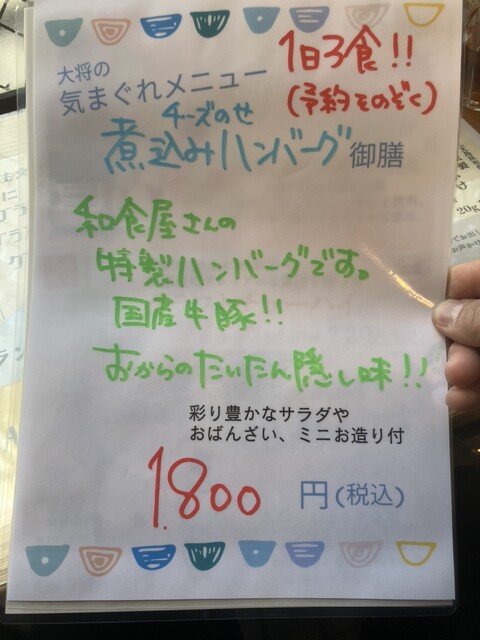 1日3食!!
(予約そのぞく)
大将の
気まぐれメニュー
チーズのせ
煮込みハンバーグ御膳
和食屋さんの
特製ハンバーグです。
国産牛豚!!
おからのたいたん隠し味!!
彩り豊かなサラダや
おばんざい、ミニお造り付
1.800円(税込)